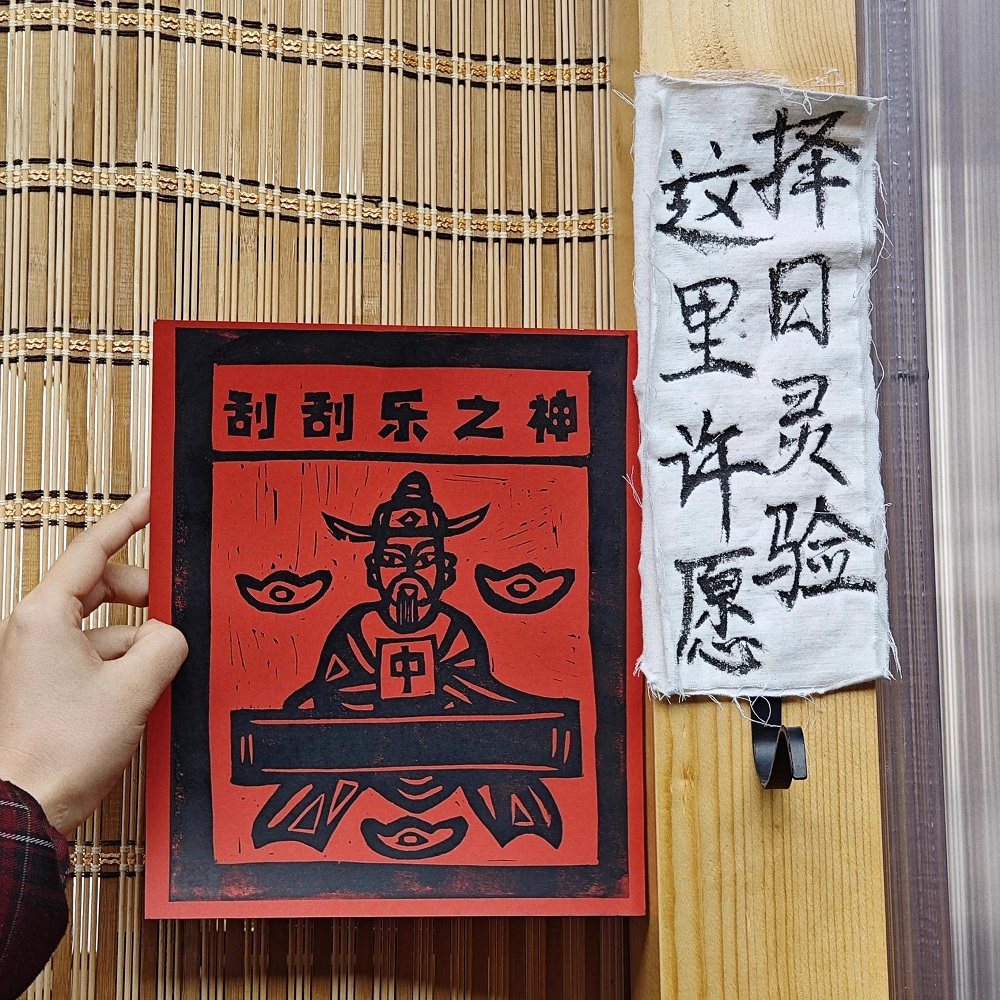 刮刮乐之神
中
择日灵验
这里许愿